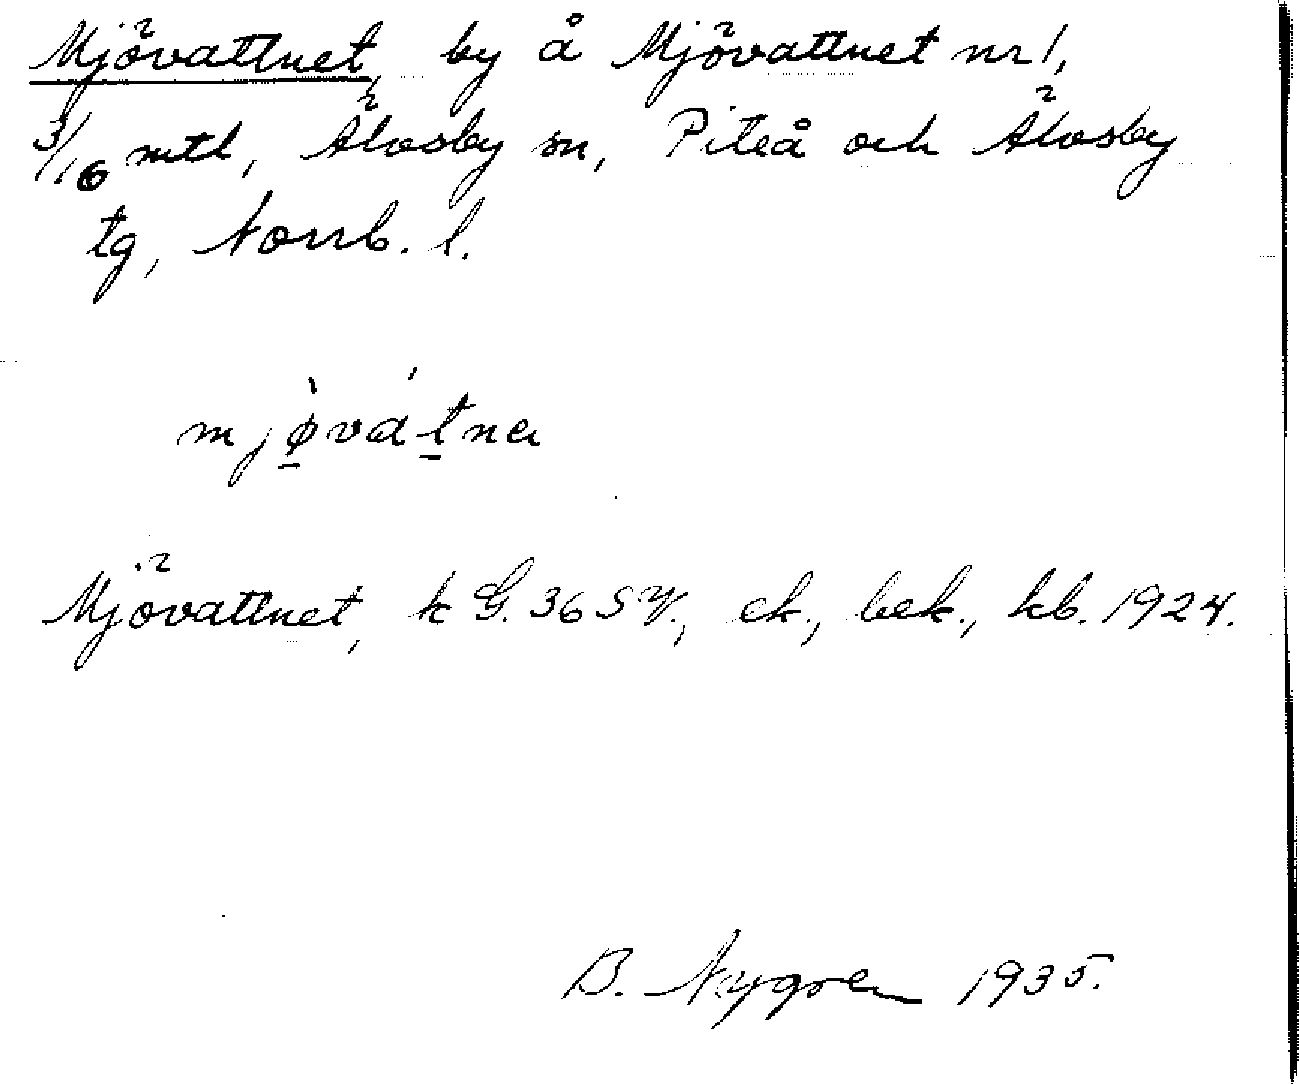 Mjövattnet, by å Mjövattnet nr 1,
3/16 mtl, Älvsby sn, Piteå och Älvsby
tg, Norrb. l.
mjø̀vátna
Mjövattnet, k G. 36 SV., ek., bek., kb. 1924.
B. Nygren 1935.